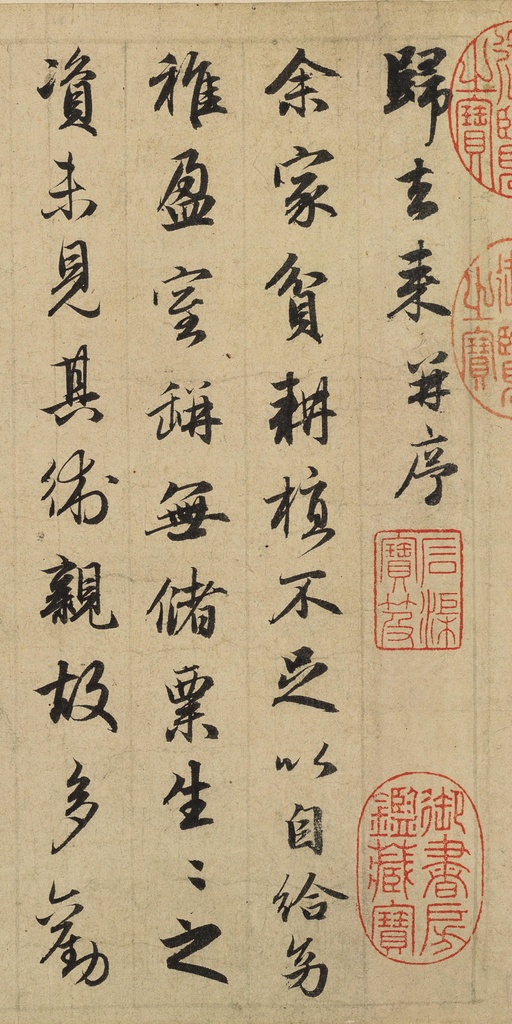 歸去来并序
余家貧耕植不足以自給幼
稚盈室缾無儲粟生〻之
資未見其術親故多勸
石渠寶笈
御書房鑑藏寶
之寶
之寶